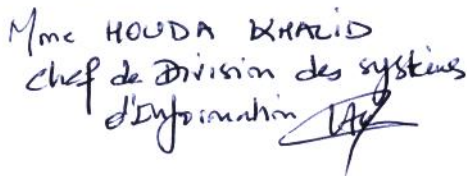 Mme HOUDA KHALID
Chef de Division des systèmes
d'Information